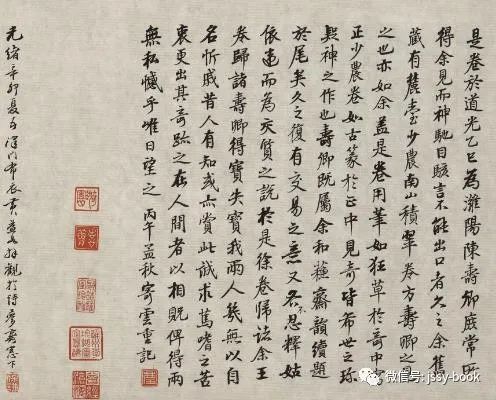 是卷於道光乙巳為濰陽陳壽卿庶常所
得余見而神馳目駭言不能出口者久之余舊
藏有麓臺少農南山積翠卷方壽卿之
之也亦如余蓋是卷用筆如狂草於奇中寓
正少農卷如古篆於正中見奇皆希世之珍
與神之作也壽卿既屬余和蘓齋韻續題
於尾矣久之復有交易之意又各不忍釋姑
依違而為交質之說於是徐卷歸諸余王
卷歸諸壽卿得寶失寶我兩人能無以自
名忻戚昔人有知或亦賞此誠求篤嗜之苦
衷更出其奇跡之在人間者以相貺俾得兩
無私憾乎唯日望之 丙午孟秋寄雲重記
光緒辛卯夏五
微信号: jssy-book